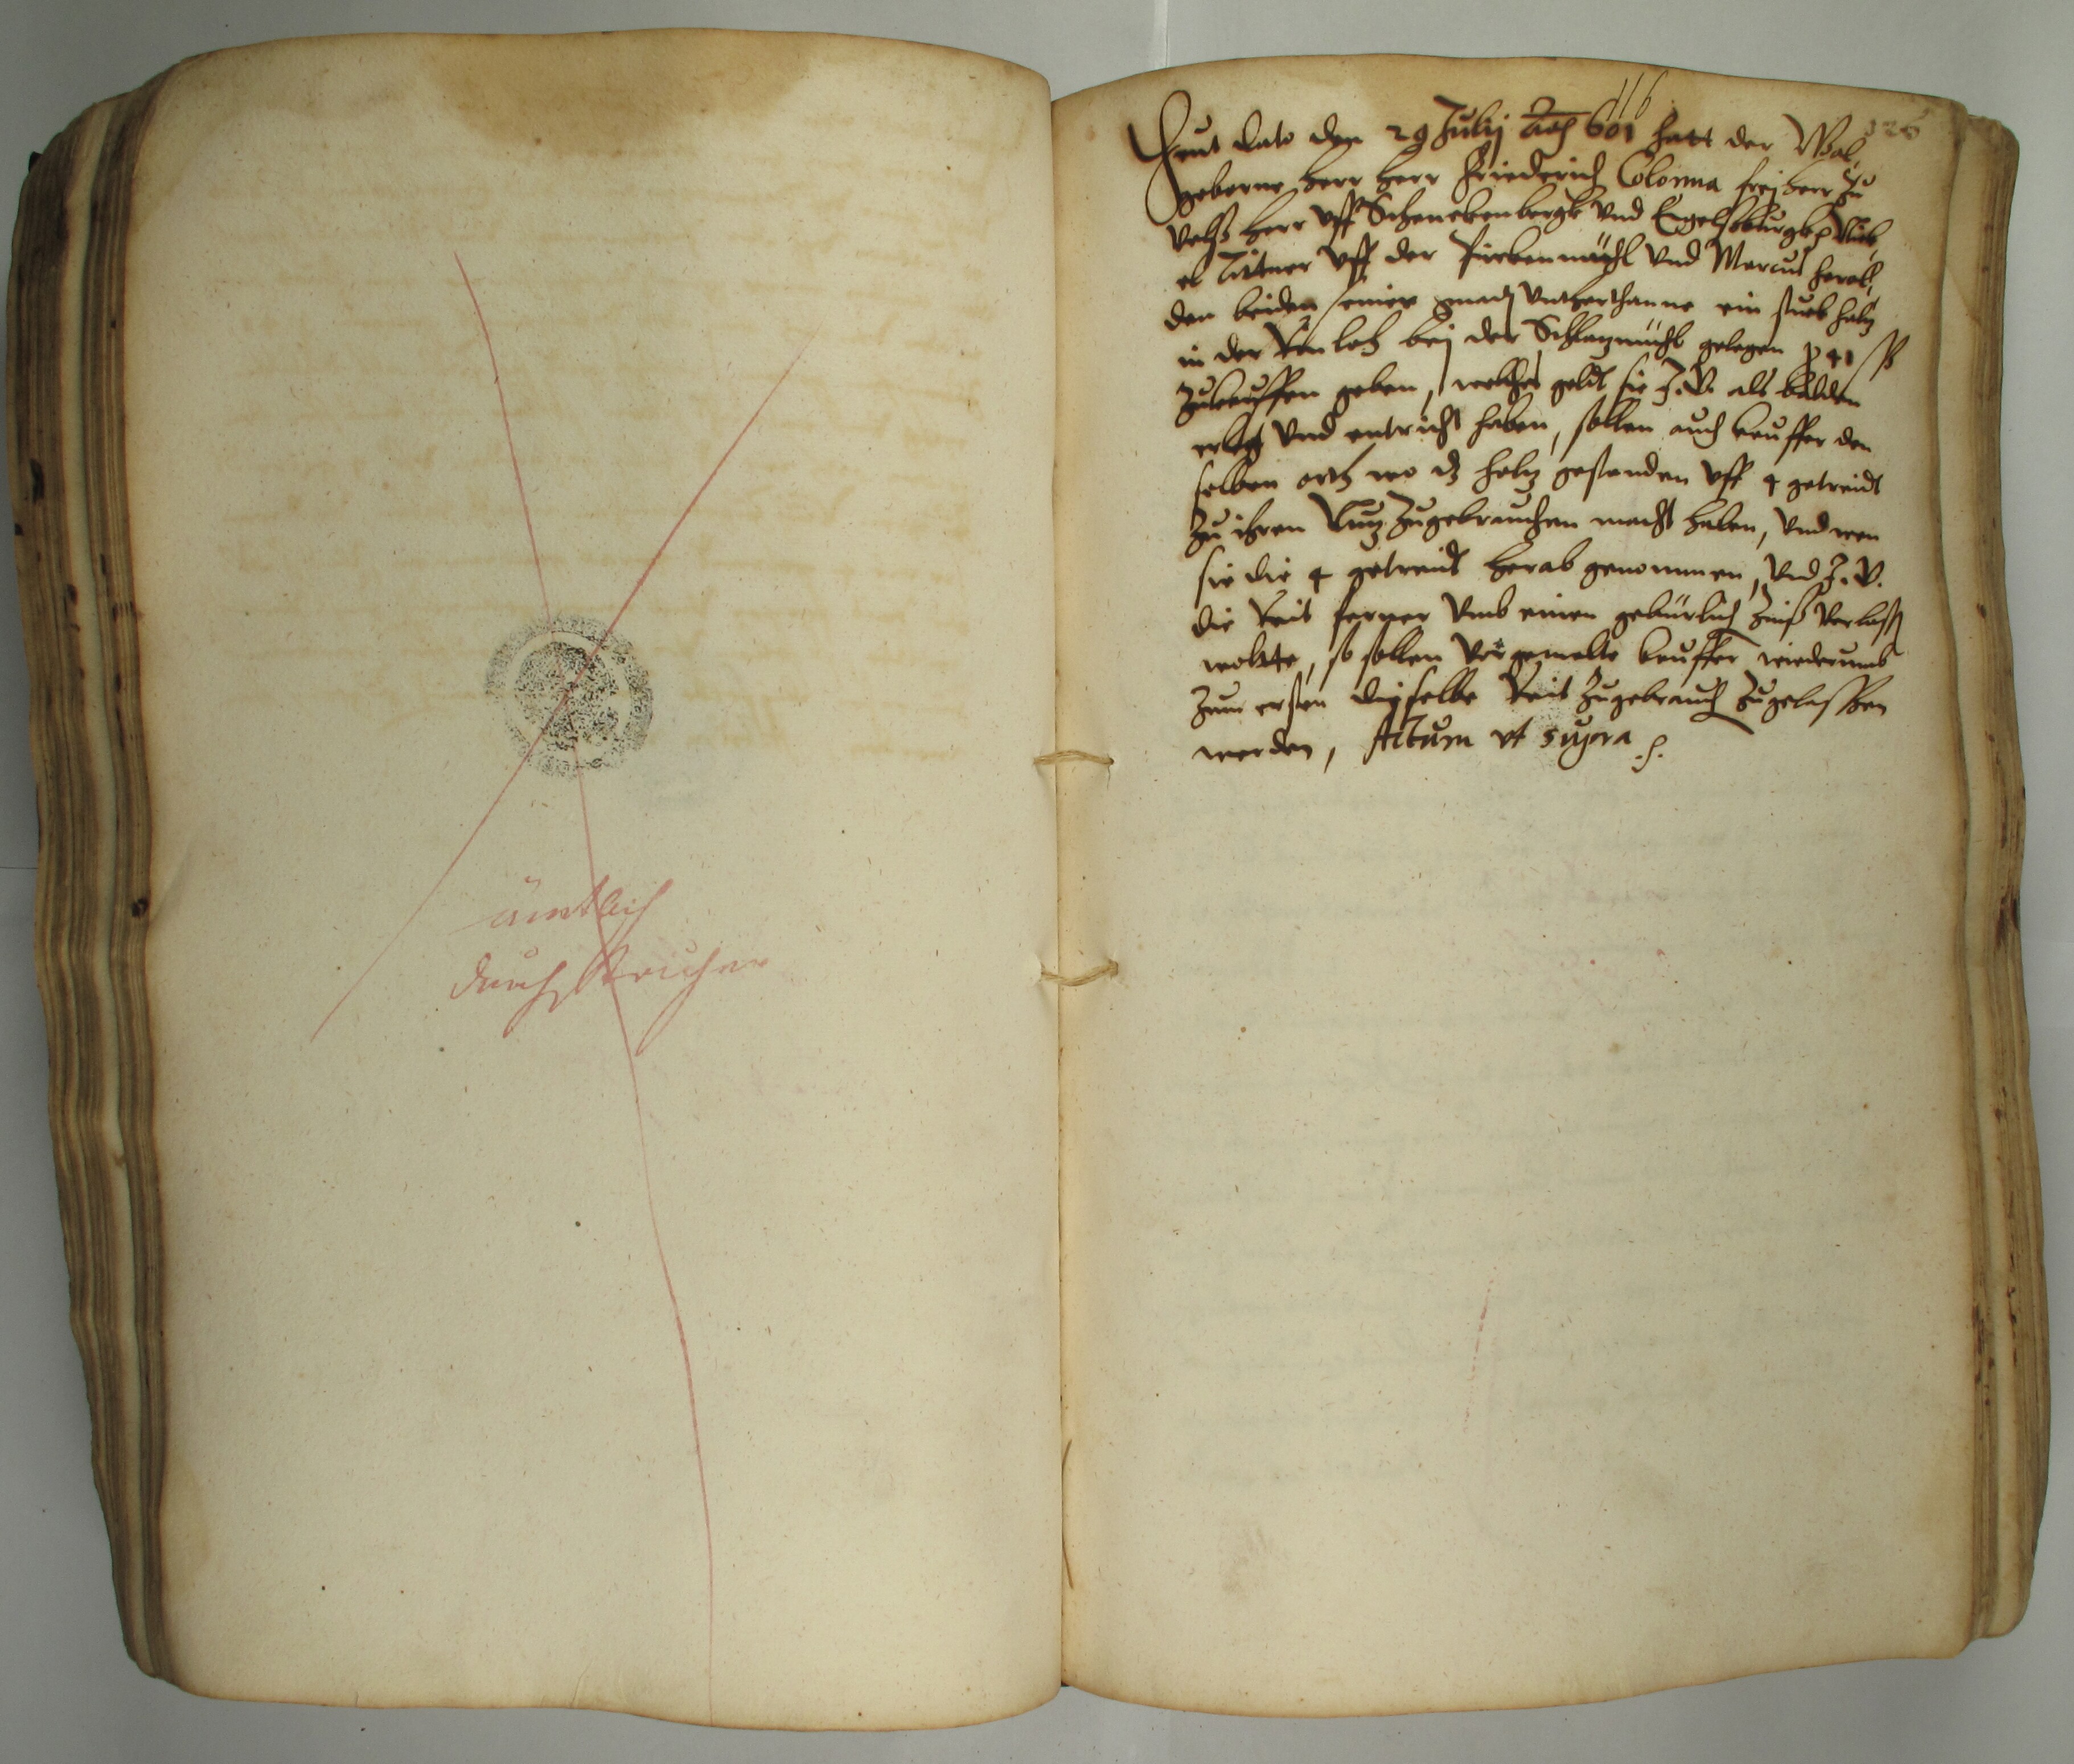 ämtlich
durchstrichen
116
126
Heut dato den 29 Julij Ao 601 hatt der Wol
geborne herr herr Friederich Colonna freiherr zu
Velß herr vff Schenckenbergk vnd Engelsburgk
Tittner vff der vnd Marcus
den beiden seinen vnterthanne ein stuck holtz
in der bej der gelegen p 41 ß
zukauffen geben, welches geldt sie J. G. als balden
erlegt vnd entricht haben, sollen auch keuffer den
selben orth wo dz holtz gestanden vff 4 getreidt
zu ihren Nutz zugebrauchen macht haben, vnd wen
sie die 4 getreidt herab genommen, vnd J. G.
die Reit ferner vmb einen gebürlich Zinß verlaßen
wolte, so sollen vorgemelte keuffer wiederumb
zum ersten dieselbe Reit zugebrauch zugelassen
werden, Actum vt supra